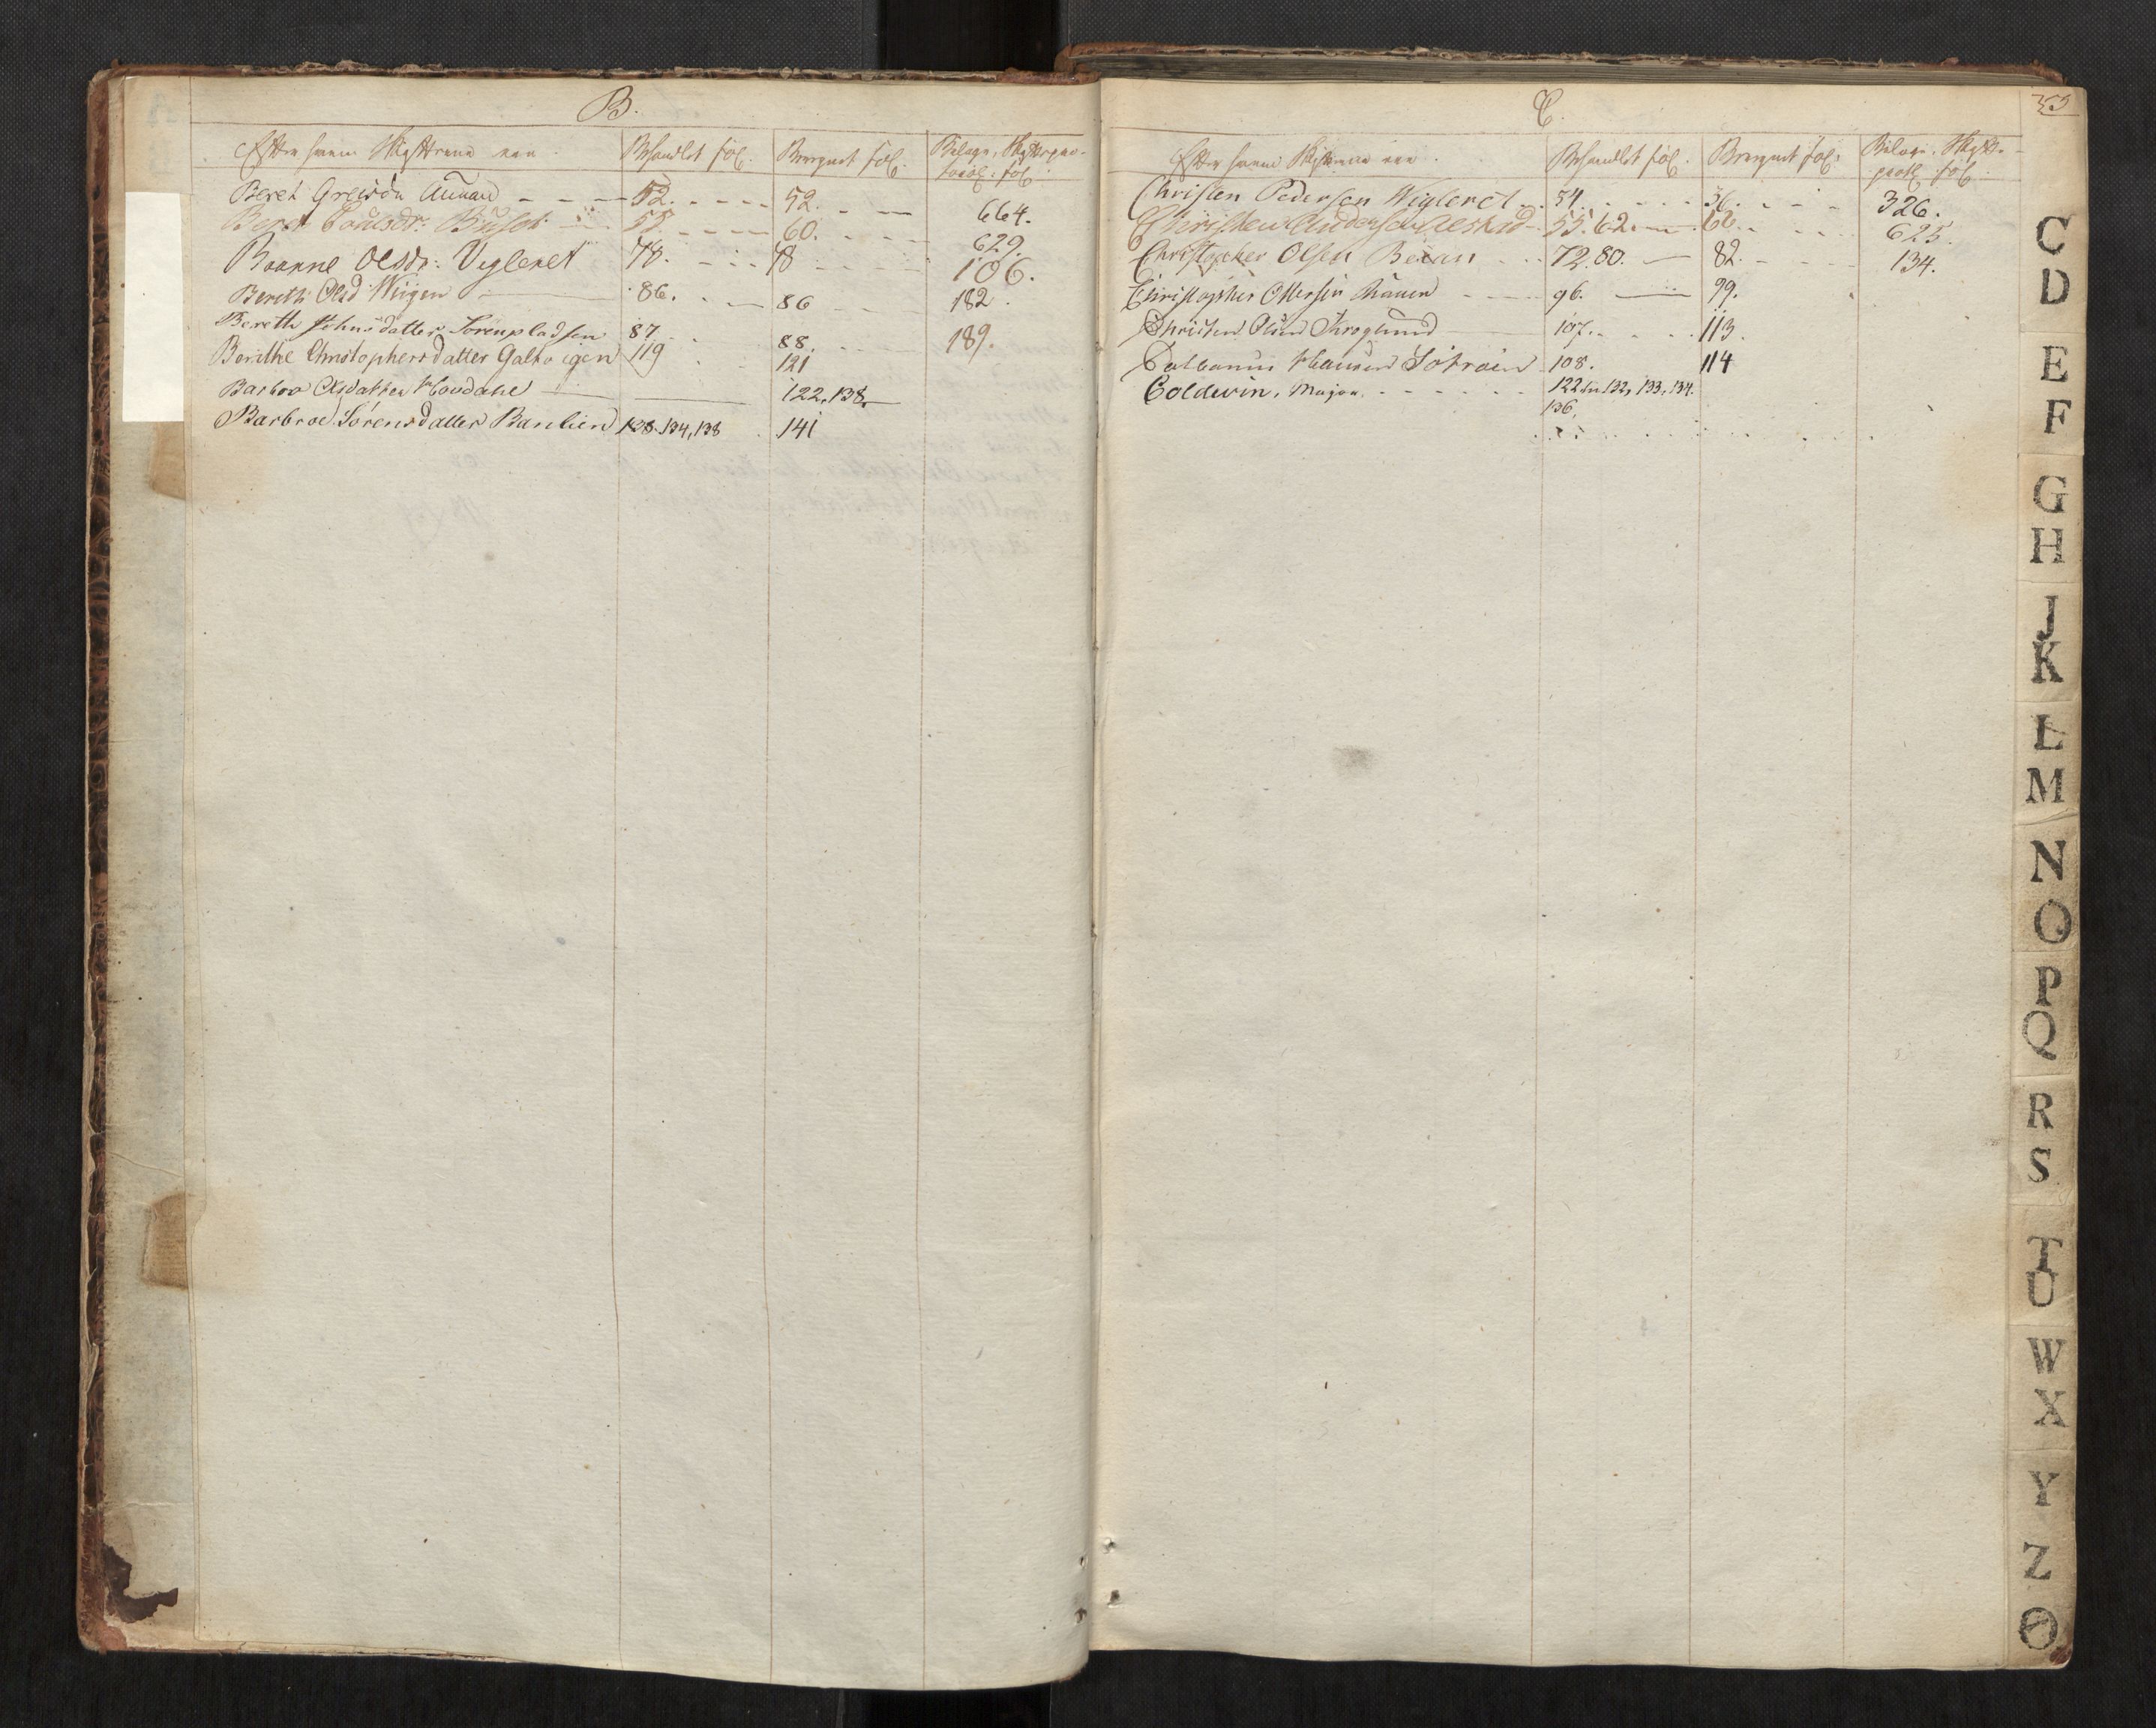 B.
Efter hvem Skifterne ere. Behandlet fol. Beregnet fol. Bilage, Skifteprotocol: fol.
Beret 52. 52. 664.
Beret 55. 60. 629.
Olsdr: Vigleret 78. 78 106.
Bereth Olsd. Wiigen 86. 86 182.
Bereth Johnsdatter Sörenpladsen 87. 88. 189.
Berithe Christophersdatter 119 121
Barbro Olsdatter Hovdahl 122, 138,
Barbroe Sörensdatter Banlien 134, 138 141
C.
53
Efter hvem Skifterne ere. Behandlet fol. Beregnet fol. Bilage. Skifteprotl fol
Christen Pedersen Wigleret 34. 36. 326.
Christen Andersen 55. 62. 66. 625.
Christopher Olsen 72. 80. 82. 134.
Christopher Ottersen 96. 99.
Christen Olsen Kroglund 107. 113.
Hansen 108. 114
Coldevin, Major. 122, 132, 133, 134.
136.
C
D
E
F
G
H
J
K
L
M
N
O
P
Q
R
S
T
U
W
X
Y
Z
Ø